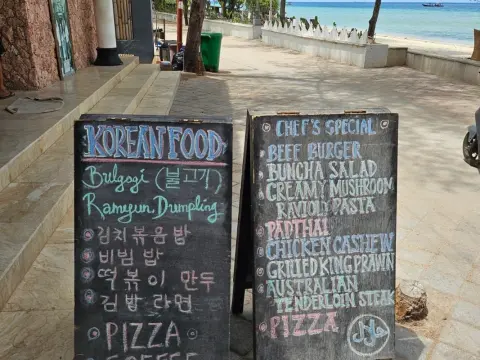 KOREAN FOOD
Bulgogi (불고기)
Rameyun, Dumpling
김치볶음밥
비빔밥
떡볶이 만두
김밥 라면
PIZZA
COFFEE
CHEF'S SPECIAL
BEEF BURGER
BUNCHA SALAD
CREAMY MUSHROOM
RAVIOLI PASTA
PADTHAI
CHICKEN CASHEW
GRILLED KING PRAWN
AUSTRALIAN
TENDERLOIN STEAK
PIZZA